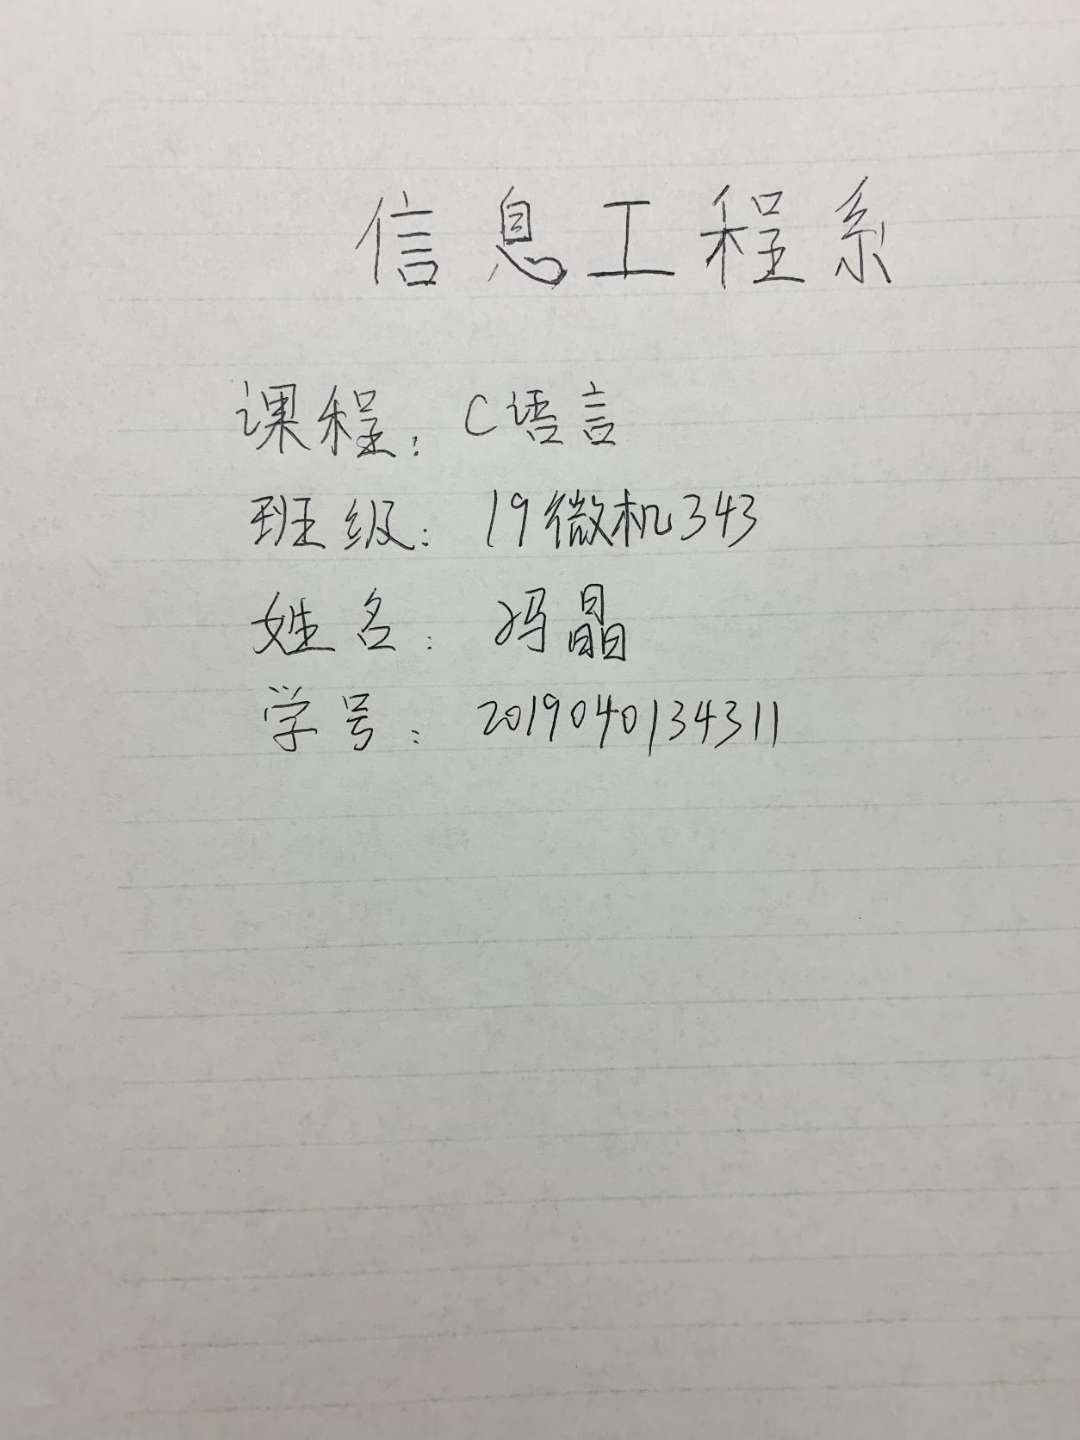 信息工程系
课程：C语言
班级：19微机343
姓名：冯晶
学号：2019040134311